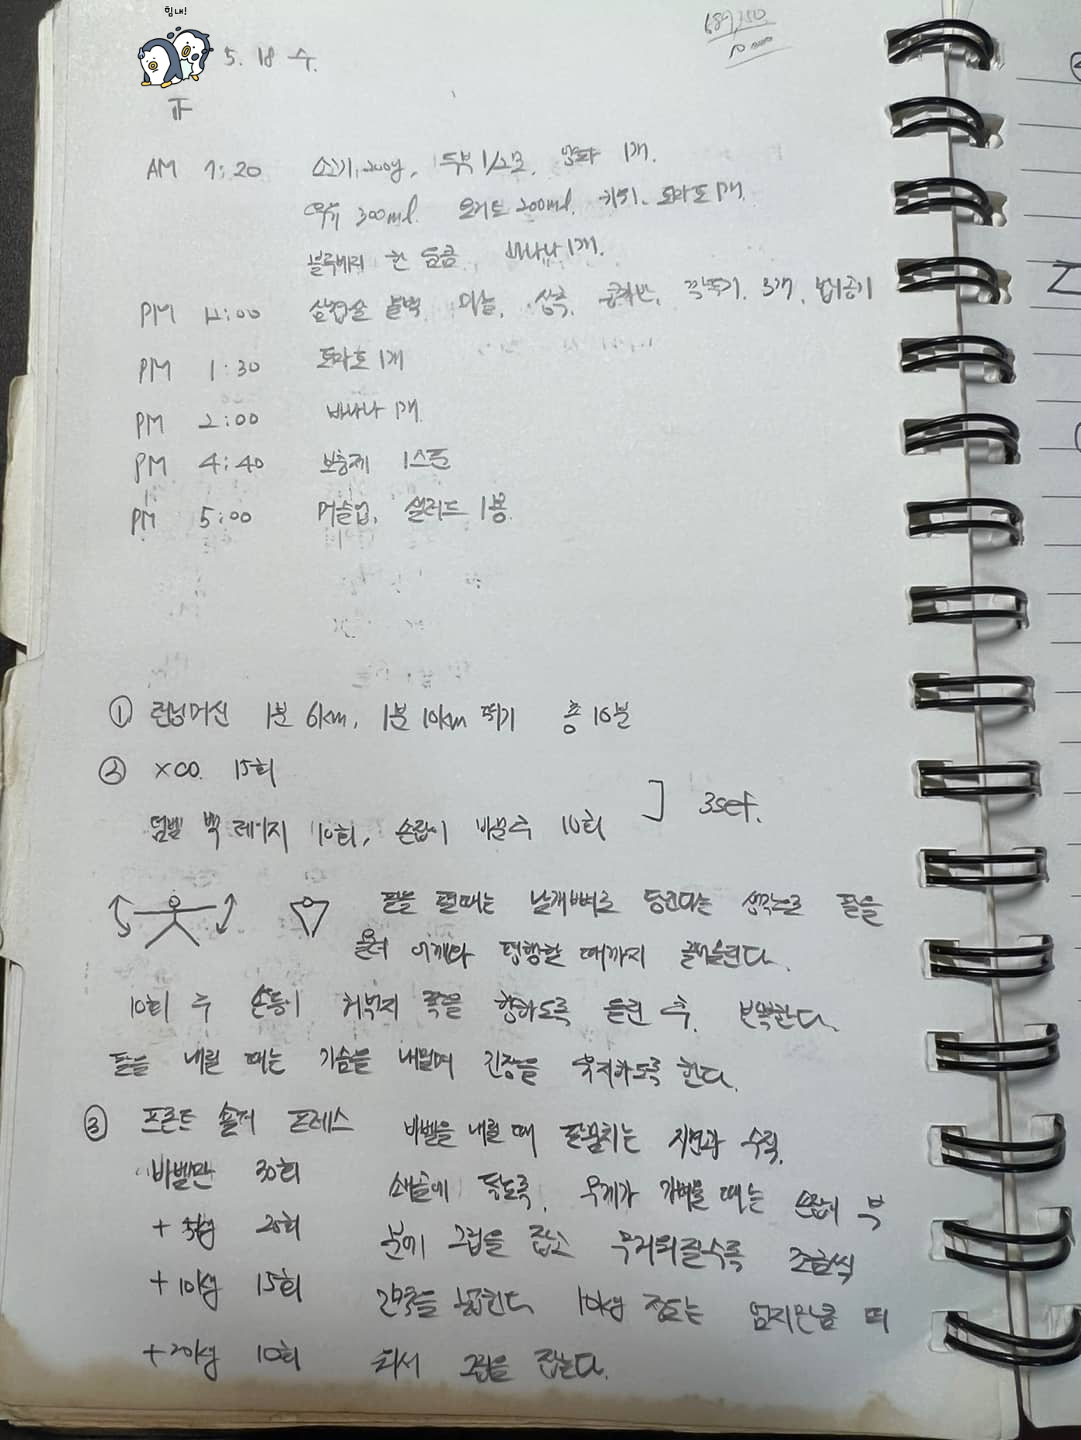 힘내!
5. 18 수.
正
AM 7:20 소고기 200g, 두부 1/2모, 양파 1개.
우유 300ml. 요거트 200ml. 키위, 토마토 1개.
블루베리 한 움큼, 바나나 1개.
PM 12:00 삼겹살 마늘, 상추, 공기반, 깍두기, 3개,
PM 1:30 토마토 1개
PM 2:00 바나나 1개
PM 4:40 보충제 1스푼
PM 5:00 머슬업, 샐러드 1봉
① 런닝머신 1분 6km, 1분 10km 뛰기 총 16분
② XCO. 15회
덤벨 백 레이지 10회, 손잡이 바꾼 후 10회 ] 3set.
팔을 펼때는 날개뼈로 당긴다는 생각으로 팔을
어깨와 평행할 때까지 끌어올린다.
10회 후 손등이 허벅지 쪽을 향하도록 돌린 후, 반복한다.
팔을 내릴 때는 가슴을 내밀며 긴장을 유지하도록 한다.
③ 프론트 숄더 프레스 바벨을 내릴 때 팔꿈치는 지면과 수직.
바벨만 30회 쇄골에 닿도록, 무게가 가벼울 때는 손잡이 부
+5kg 20회 분에 그립을 잡고 무거워질수록 조금씩
+10kg 15회 간격을 넓힌다 10kg 정도는 엄지만큼 띄
+20kg 10회 워서 그립을 잡는다.